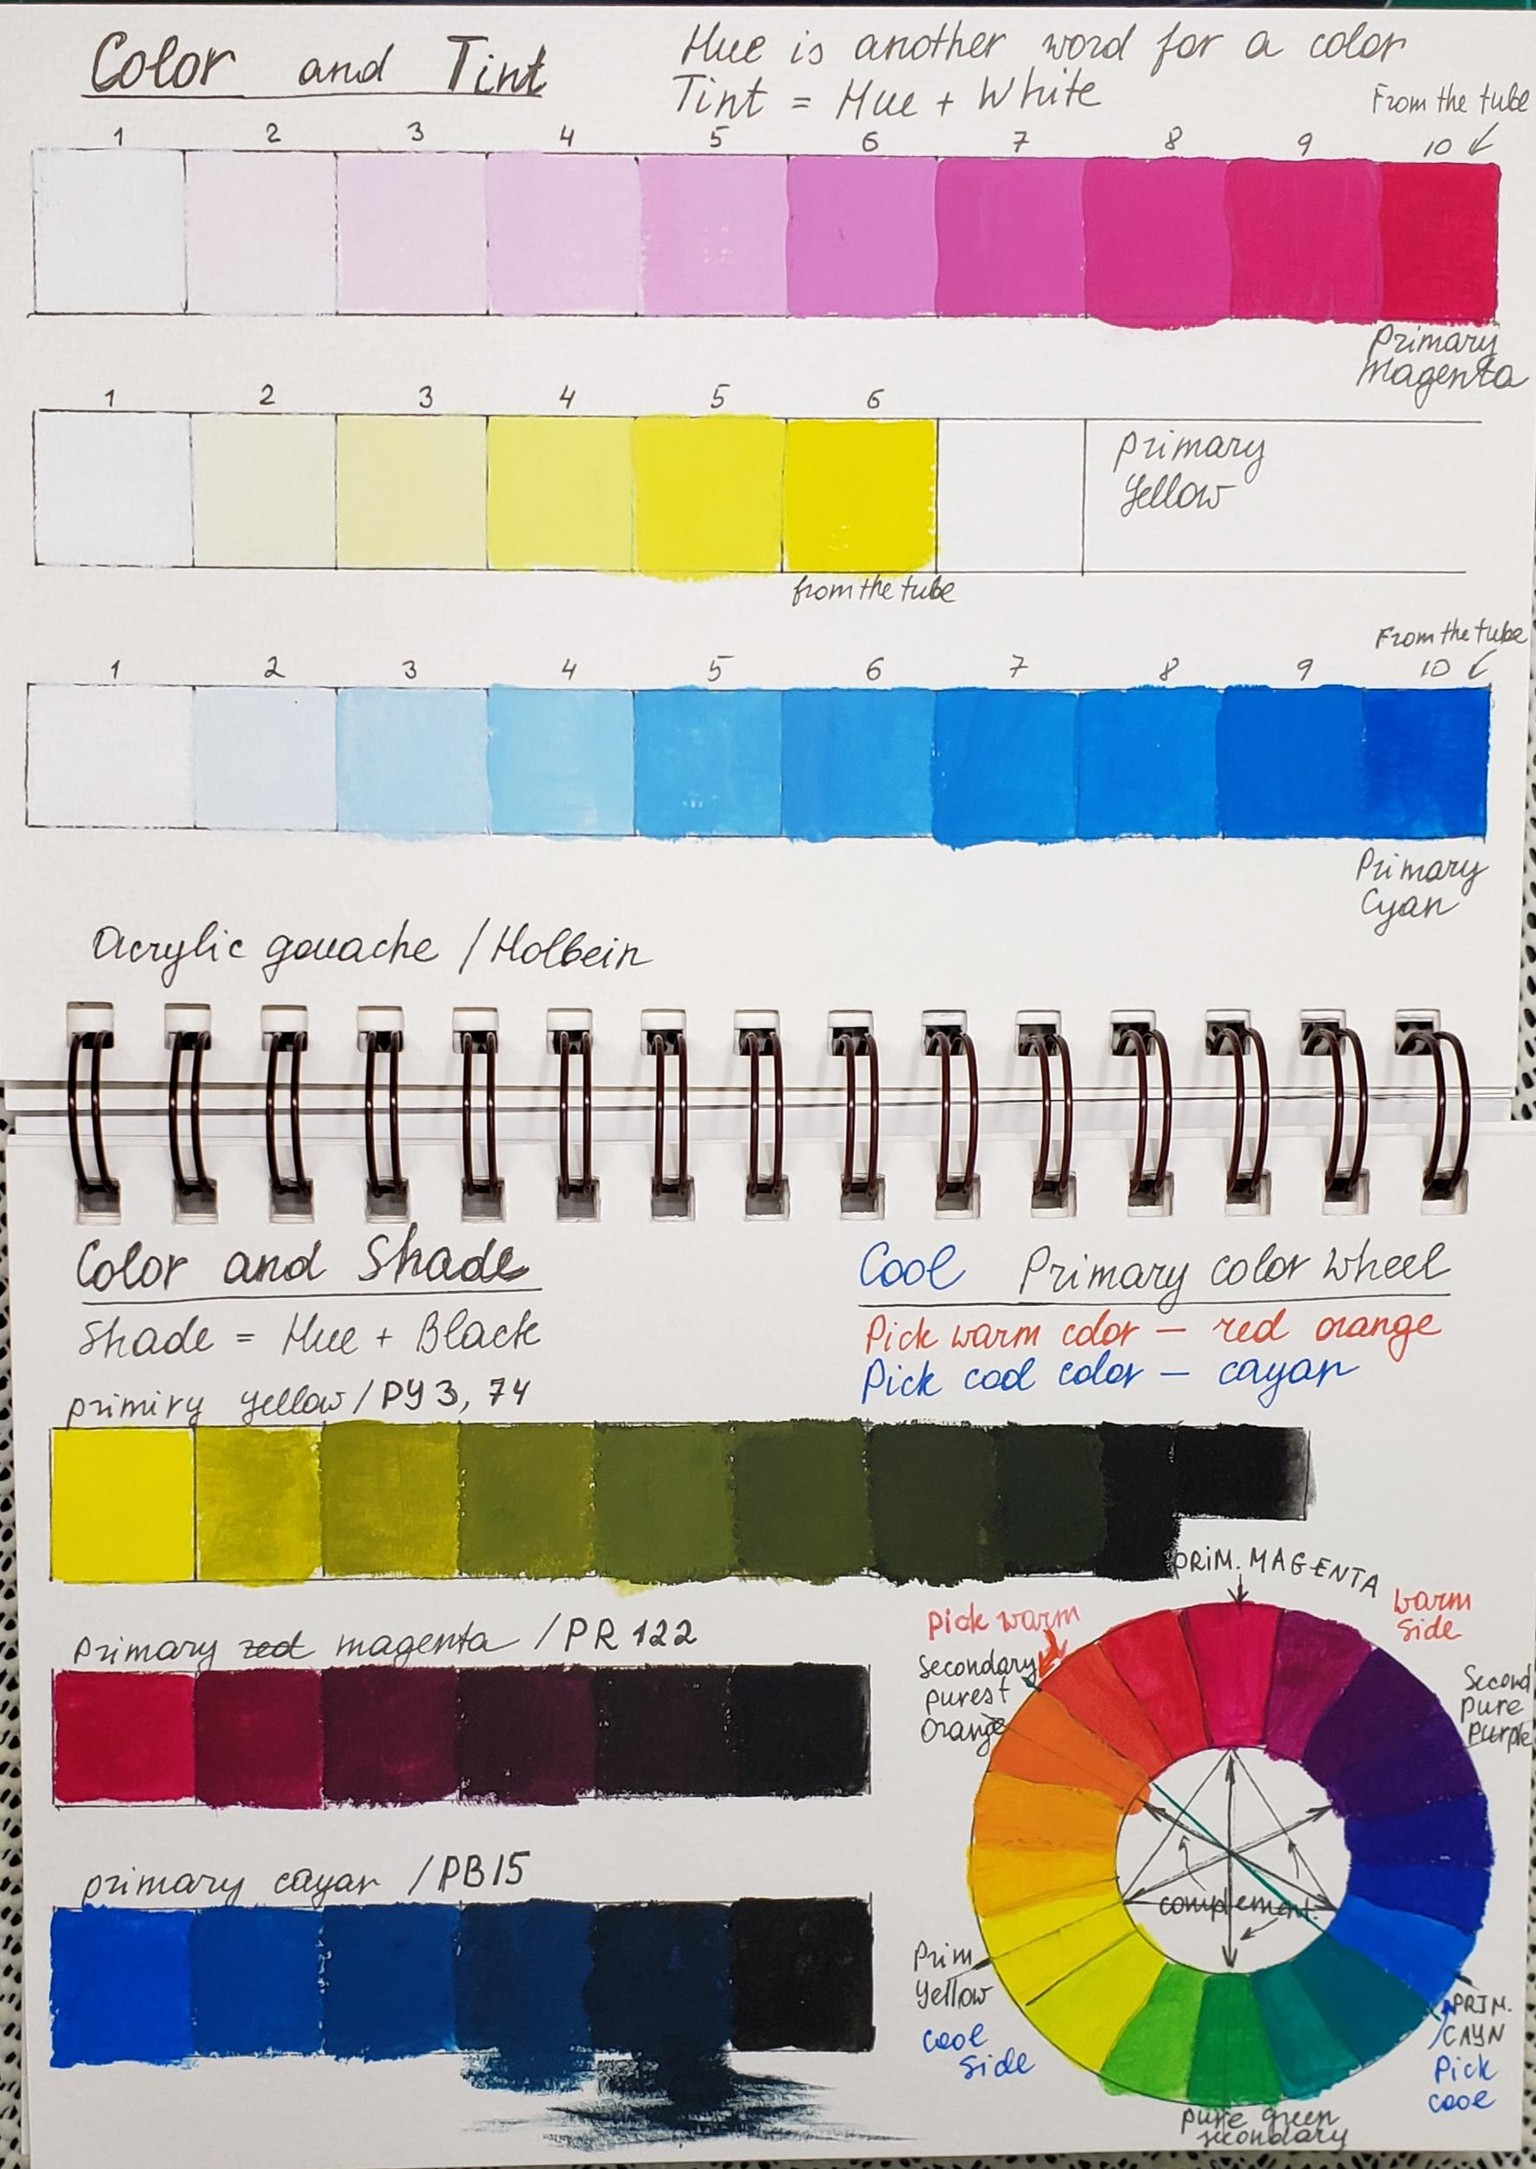 Color and Tint
Hue is another word for a color
Tint = Hue + White
From the tube
1 2 3 4 5 6 7 8 9 10
Primary
Magenta
1 2 3 4 5 6
Primary
Yellow
from the tube
From the tube
1 2 3 4 5 6 7 8 9 10
Primary
Cyan
Acrylic gouache / Holbein
Color and Shade
Shade = Hue + Black
primiry yellow / PY3, 74
Cool Primary color wheel
Pick warm color – red orange
Pick cool color – cayan
Primary red magenta / PR 122
primary cayan / PB15
PRIM. MAGENTA
Pick warm
warm
Side
Secondary
purest
Orange
Second
pure
purple
complement.
Prim
Yellow
Cool
Side
PRIM.
CAYN
Pick
cool
pure green
secondary